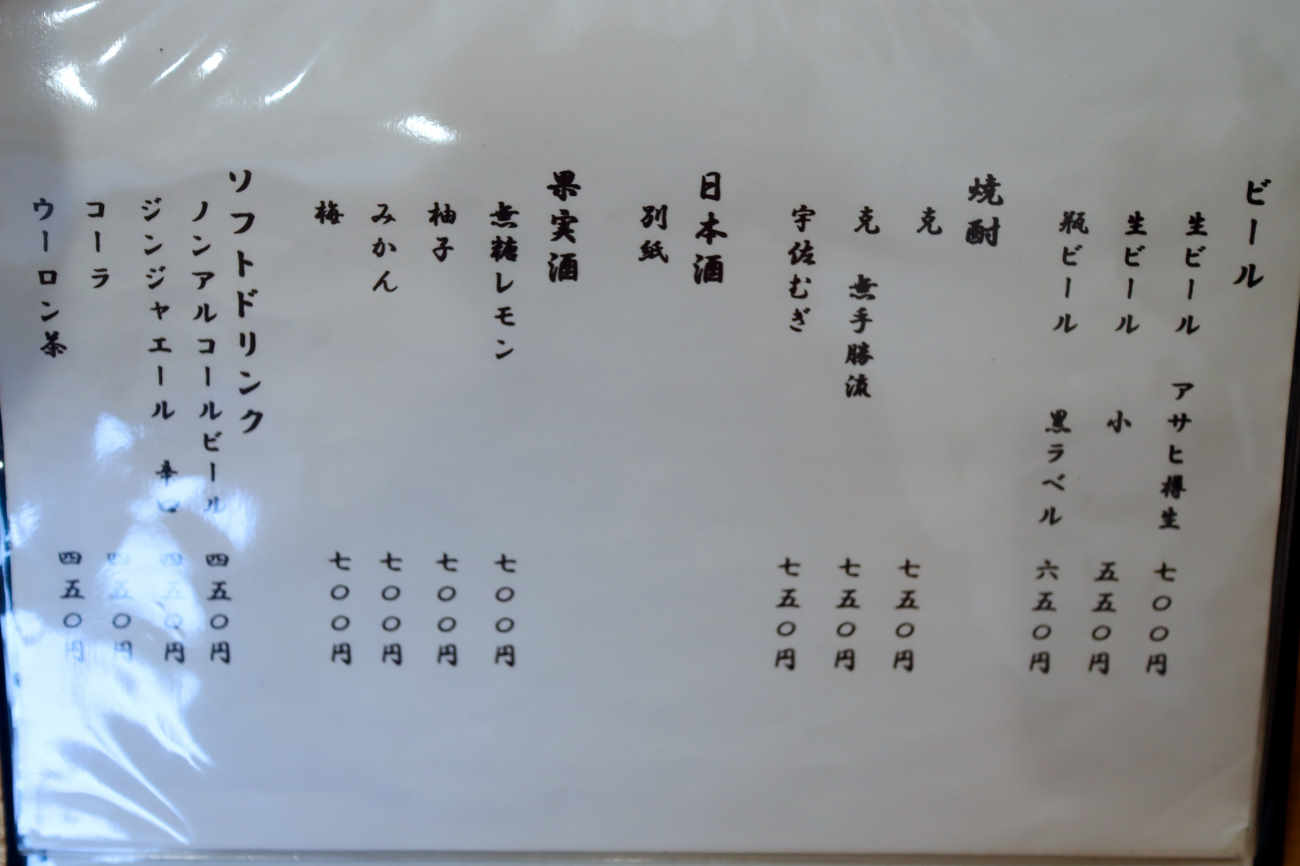 ビール
生ビール アサヒ樽生 七〇〇円
生ビール 小 五五〇円
瓶ビール 黒ラベル 六五〇円
焼酎
克 七五〇円
克 無手勝流 七五〇円
宇佐むぎ 七五〇円
日本酒
別紙
果実酒
無糖レモン 七〇〇円
柚子 七〇〇円
みかん 七〇〇円
梅 七〇〇円
ソフトドリンク
ノンアルコールビール 四五〇円
ジンジャエール 辛口 四五〇円
コーラ 四五〇円
ウーロン茶 四五〇円